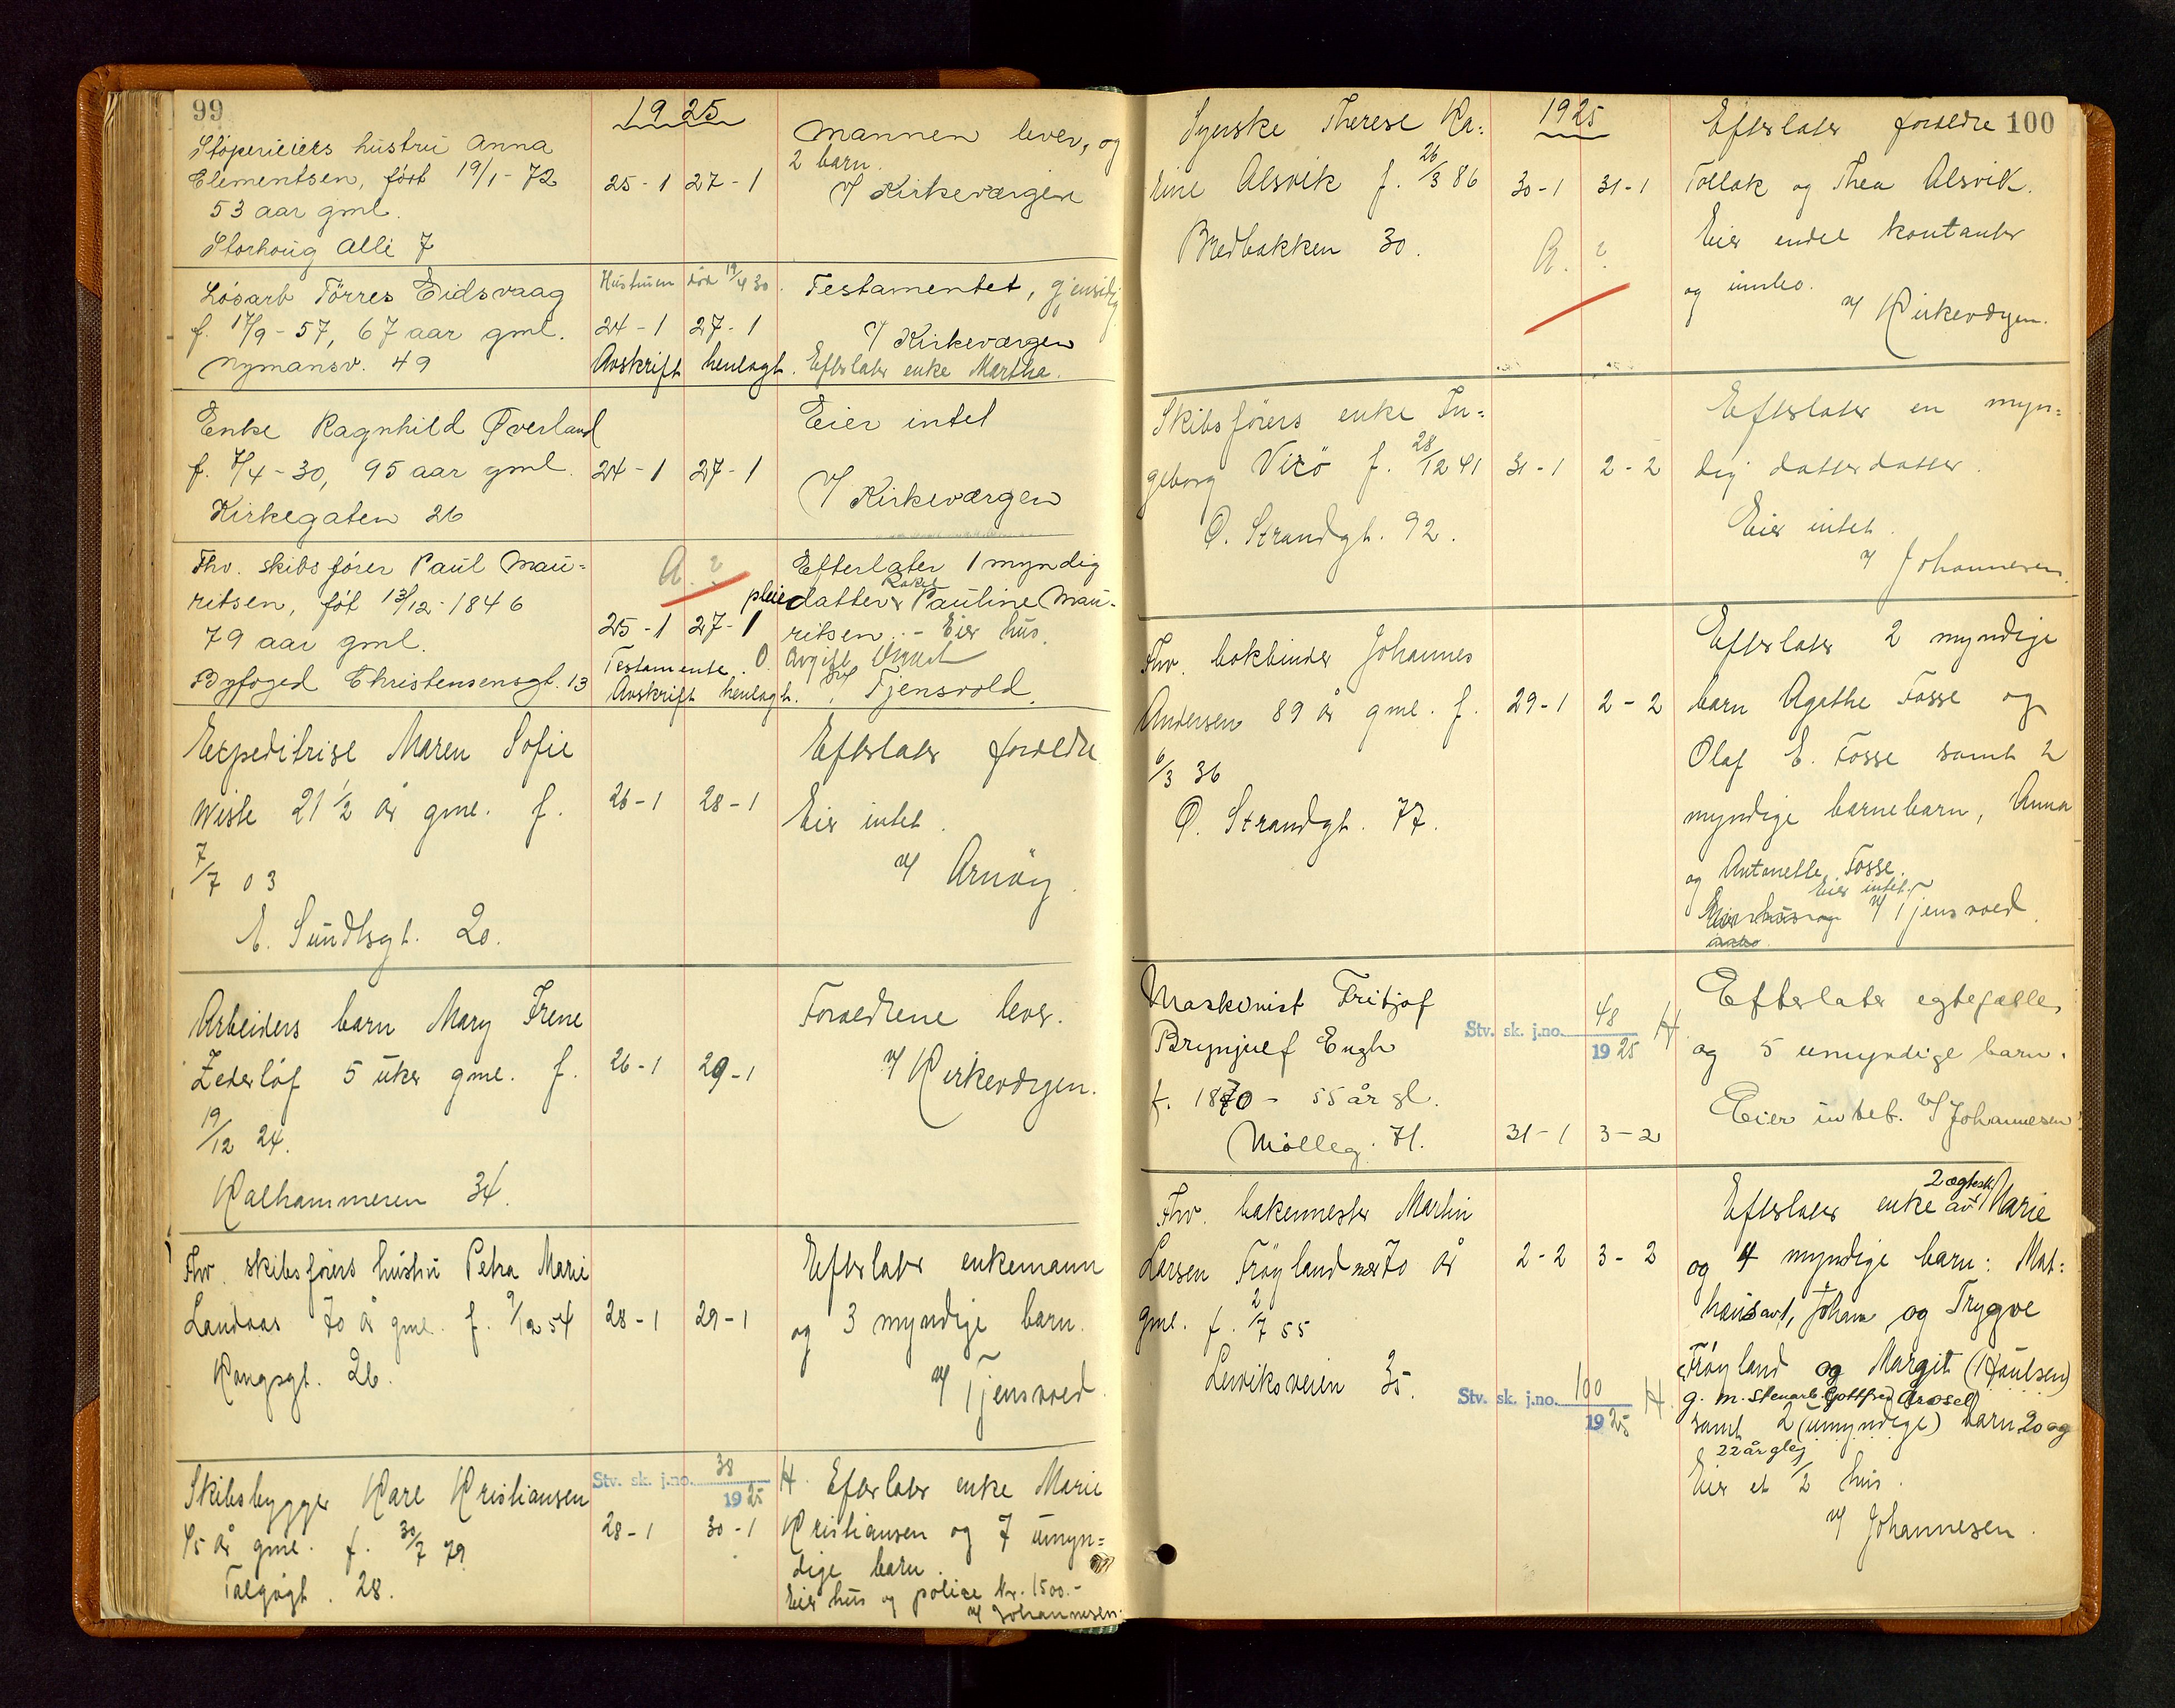 99
1925
Støperieiers hustru Anna
Clementsen, født 19/1-72
53 aar gml.
Storhoug Allé 7
25-1 27-1
Mannen lever, og
2 barn.
v/ Kirkeværgen
Løsarb Tørres Eidsvaag
f. 17/9-57, 67 aar gml.
Nymansv. 49
Hustruen død 19/4 30.
24-1 27-1
Avskrift henlagt.
Testamentet, gjensidig
v/ Kirkeværgen
Efterlater enke Martha.
Enke Ragnhild Øverland
f. 7/4-30, 95 aar gml.
Kirkegaten 26
24-1 27-1
Eier intet
v/ Kirkeværgen
Fhv. skibsfører Paul Mau-
ritsen, født 13/12-1846
79 aar gml.
Byfoged Christensensgt. 13
A. ?
25-1 27-1
Testamente.
Avskrift henlagt.
Efterlater 1 myndig
pleiedatter Rakel Pauline Mau-
ritsen. - Eier hus.
O. Avgift
v/ Tjensvold.
Expeditrise Maren Sofie
Wiste 21 1/2 år gml. f.
7/7 03
E. Sundtsgt. 20.
26-1 28-1
Efterlater forældre
Eier intet.
v/ Arnøy.
Arbeiders barn Mary Irene
Zederløf 5 uker gml. f.
19/12 24.
Kalhammeren 34.
26-1 29-1
Forældrene lever.
v/ Kirkeværgen.
Fhv. skibsførers hustru Petra Marie
Landaas 70 år gml. f. 9/12 54
Kongsgt. 26.
28-1 29-1
Efterlater enkemann
og 3 myndige barn.
v/ Tjensvold.
Skibsbygger Karl Kristiansen
45 år gml. f. 30/7 79
Talgøgt. 28.
Stv. sk. j.no. 38
1925
28-1 30-1
H. Efterlater enke Marie
Kristiansen og 7 umyn-
dige barn.
Eier hus og police kr. 1500.-
v/ Johannesen.
100
1925
Syerske Therese Ka-
rine Alsvik f. 26/3 86
Bredbakken 30.
30-1 31-1
A. ?
Efterlater forældre
Tollak og Thea Alsvik.
Eier endel kontanter
og innbo.
v/ Kirkeværgen.
Skibsførers enke In-
geborg Virø f. 28/12 41
Ø. Strandgt. 92.
31-1 2-2
Efterlater en myn-
dig datterdatter.
Eier intet.
v/ Johannesen.
Fhv. bokbinder Johannes
Andersen 89 år gml. f.
6/3 36
Ø. Strandgt. 77.
29-1 2-2
Efterlater 2 myndige
barn Agathe Fosse og
Olaf E. Fosse samt 2
myndige barnebarn, Anna
og Antonette Fosse.
Eier intet.
Eier hus og
innbo.
v/ Tjensvold.
Maskinist Fritjof
Brynjulf Engh
f. 1870 - 55 år gl.
Mølleg. 71.
Stv. sk. j.no. 48
1925 H.
31-1 3-2
Efterlater egtefælle,
og 5 umyndige barn.
Eier intet. v/ Johannesen.
Fhv. bakermester Martin
Larsen Frøyland nær 70 år
gml. f. 2/7 55
Lerviksveien 35.
2-2 3-2
Stv. sk. j.no. 100
1925 H.
Efterlater enke av 2 ægtesk. Marie
og 4 myndige barn: Mat-
Johan og Trygve
Frøyland og Margit (Poulsen)
g. m. stenarb. Gottfred
samt 2 (umyndige) barn 20 og
22 år glej
Eier et 1/2 hus.
v/ Johannesen.